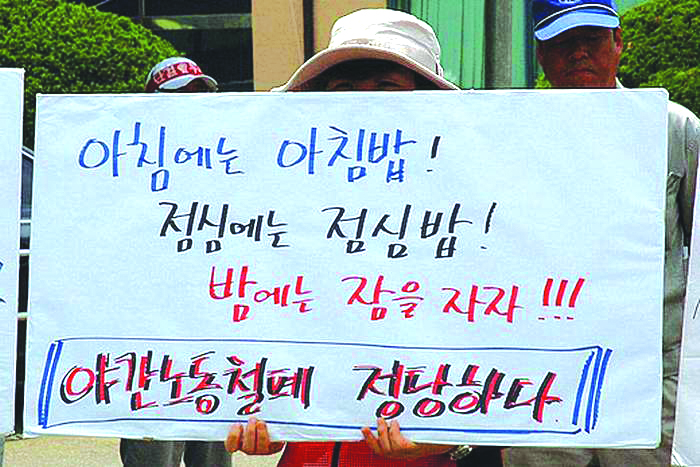 아침에는 아침밥!
점심에는 점심밥!
밤에는 잠을 자자!!!
야간노동철폐 정당하다